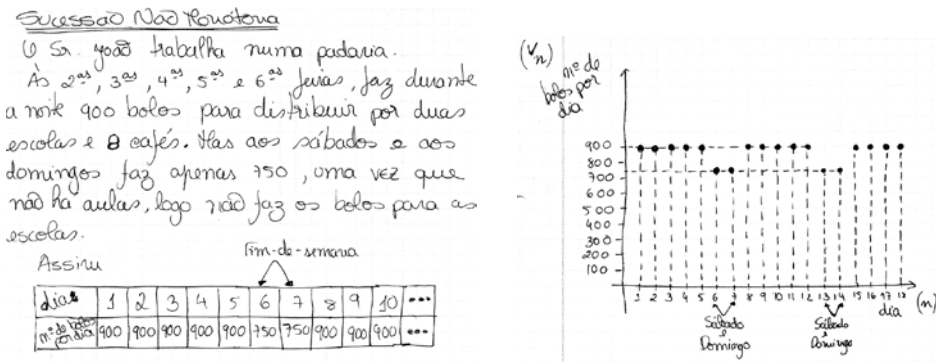 Sucessão Não Monótona
O Sr. João trabalha numa padaria.
Às 2ªs, 3ªs, 4ªs, 5ªs e 6ªs feiras, faz durante
a noite 900 bolos para distribuir por duas
escolas e 8 cafés. Mas aos sábados e aos
domingos faz apenas 750, uma vez que
não há aulas, logo não faz os bolos para as
escolas.
Fim-de-semana
Assim
dias 1 2 3 4 5 6 7 8 9 10 ...
nº de bolos por dia 900 900 900 900 900 750 750 900 900 900 ...
(Vn)
nº de
bolos por
dia
900
800
700
500
400
300
200
100
1 2 3 4 5 6 7 8 9 10 11 12 13 14 15 16 17 18 (n)
dia
Sábado e Domingo
Sábado e Domingo